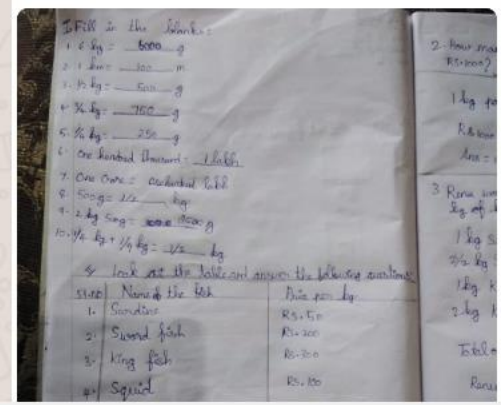 I Fill in the blanks:
1. 6 kg = 6000 g
2. 1 km = 100 m
3. 1/2 kg = 500 g
4. 3/4 kg = 750 g
5. 1/4 kg = 250 g
6. One hundred thousand = 1 lakh
7. One Crore = lakh
8. 500g = 1/2 kg
9. 2 kg 500g = 2500 g
10. 1/4 kg + 1/4 kg = 1/2 kg
Look at the table and answer the following questions
Sl.no Name of the fish Price per kg
1. Sardine Rs. 50
2. Sword fish Rs. 200
3. King fish Rs. 300
4. Squid Rs. 100
2. How
Rs. 1000?
1 kg
Rs. 1000
Ans =
3 Renu
kg of
1 kg
2 1/2 kg
1 kg K
2 kg
Total
Renu